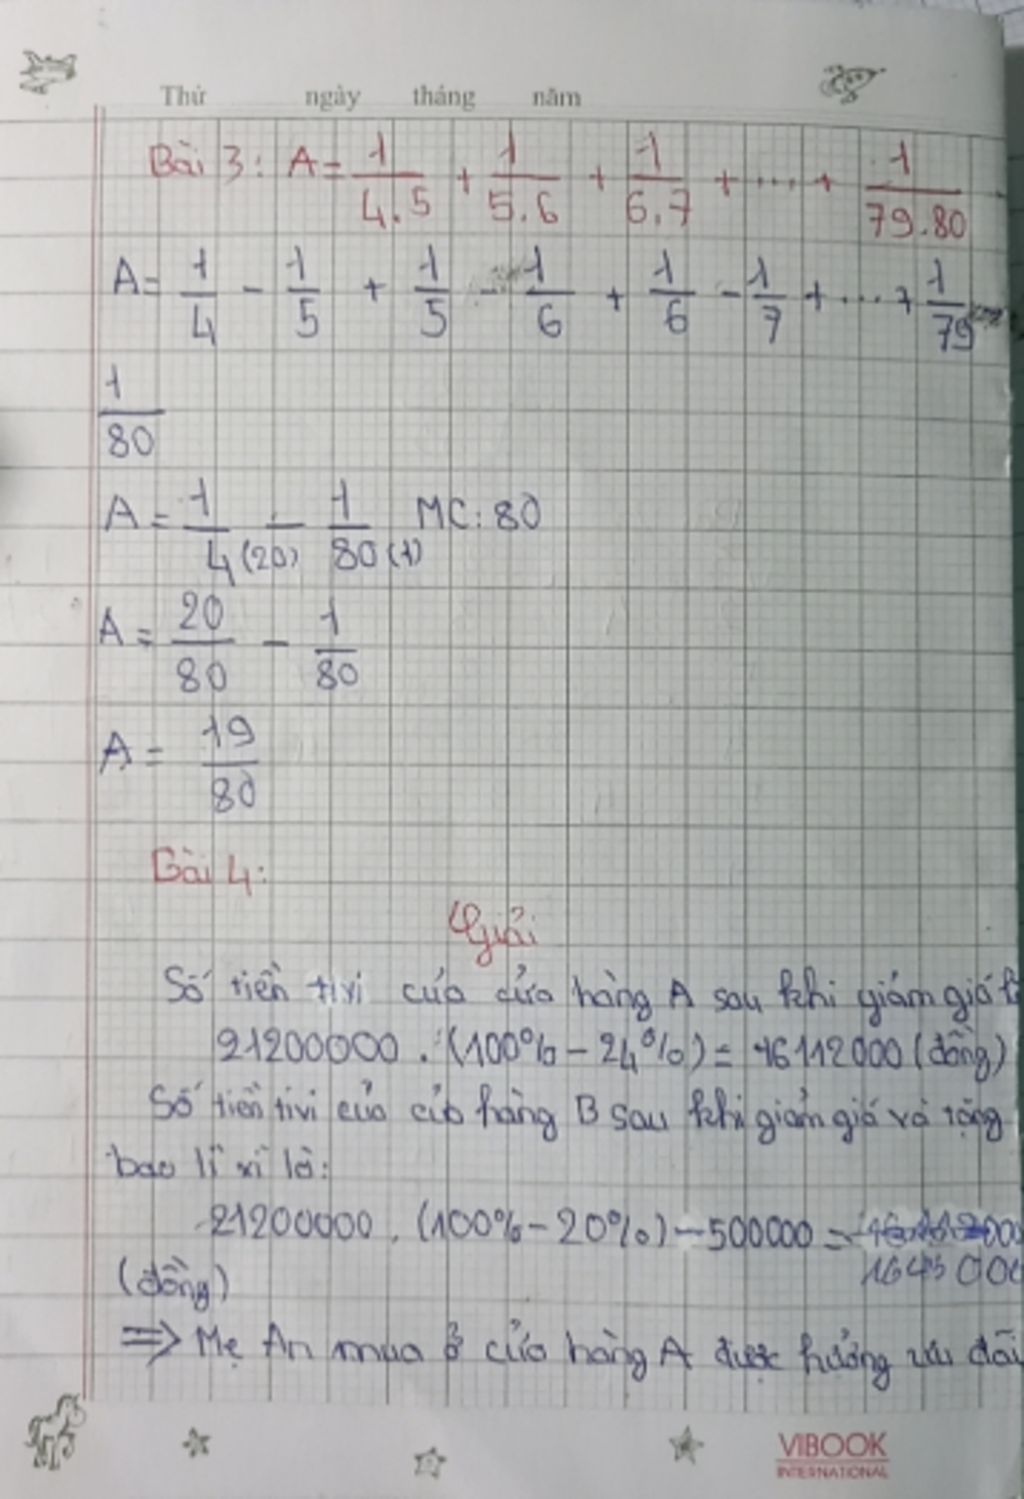 Thứ ngày tháng năm
Bài 3: A = 1/4.5 + 1/5.6 + 1/6.7 + ... + 1/79.80
A = 1/4 - 1/5 + 1/5 - 1/6 + 1/6 - 1/7 + ... + 1/79
1/80
A = 1/4(20) - 1/80(1) MC: 80
A = 20/80 - 1/80
A = 19/80
Bài 4:
Giải
Số tiền tivi của cửa hàng A sau khi giảm giá
21200000 . (100% - 24%) = 16112000 (đồng)
Số tiền tivi của cửa hàng B sau khi giảm giá và tặng
bao lì xì là:
21200000 . (100% - 20%) - 500000 =
(đồng)
=> Mẹ An mua ở cửa hàng A được hưởng ưu đãi
VIBOOK
INTERNATIONAL